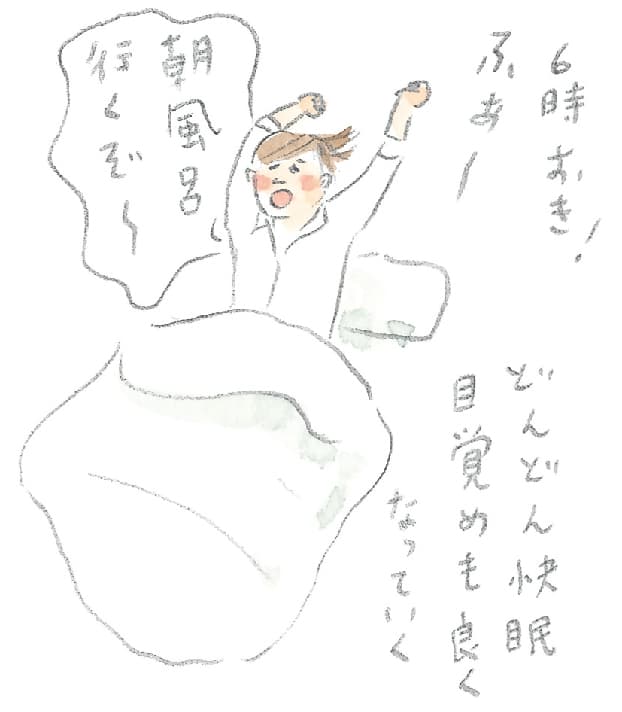 6時おき!
ふあー
朝風呂
行くぞ〜
どんどん快眠
目覚めも良く
なっていく